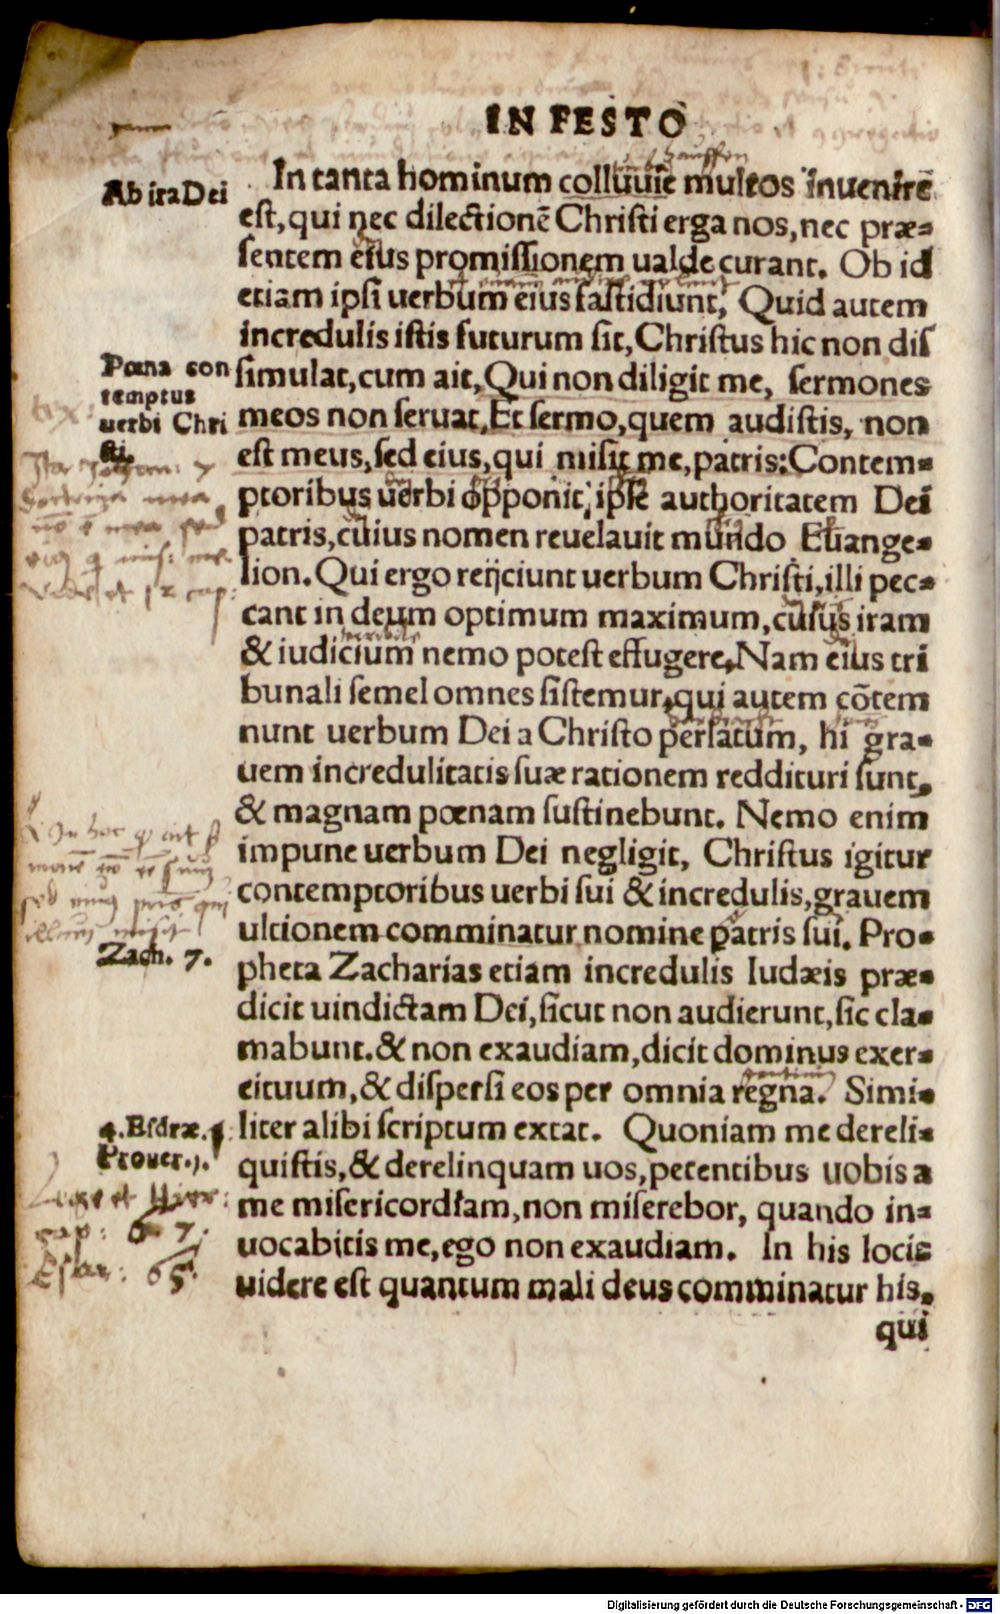 IN FESTO
hauffen
Ab ira Dei
In tanta hominum colluuie multos inuenire
est, qui nec dilectionē Christi erga nos, nec præ-
sentem eius promissionem ualde curant. Ob id
etiam ipsi uerbum eius fastidiunt, Quid autem
incredulis istis futurum sit, Christus hic non dis
Pœna con
temptus
uerbi Chri
sti.
simulat, cum ait, Qui non diligit me, sermones
meos non seruat, Et sermo, quem audistis, non
est meus, sed eius, qui misit me, patris: Contem-
ptoribus uerbi opponit, ipse authoritatem Dei
patris, cuius nomen reuelauit mundo Euange-
lion. Qui ergo reijciunt uerbum Christi, illi pec-
cant in deum optimum maximum, cuius iram
& iudicium nemo potest effugere, Nam eius tri
bunali semel omnes sistemur, qui autem cōtem
nunt uerbum Dei a Christo perlatum, hi gra-
uem incredulitatis suæ rationem reddituri sunt,
& magnam pœnam sustinebunt. Nemo enim
impune uerbum Dei negligit, Christus igitur
contemptoribus uerbi sui & incredulis, grauem
ultionem comminatur nomine patris sui. Pro-
Zach. 7.
pheta Zacharias etiam incredulis Iudæis præ-
dicit uindictam Dei, sicut non audierunt, sic cla-
mabunt. & non exaudiam, dicit dominus exer-
cituum, & dispersi eos per omnia regna. Simi-
4. Esdræ. 1
Prouer. 1.
liter alibi scriptum extat. Quoniam me dereli-
quistis, & derelinquam uos, petentibus uobis a
me misericordiam, non miserebor, quando in-
uocabitis me, ego non exaudiam. In his locis
uidere est quantum mali deus comminatur his,
qui
Lege et Hier:
cap: 6 7.
Esai: 65.
Digitalisierung gefördert durch die Deutsche Forschungsgemeinschaft - DFG